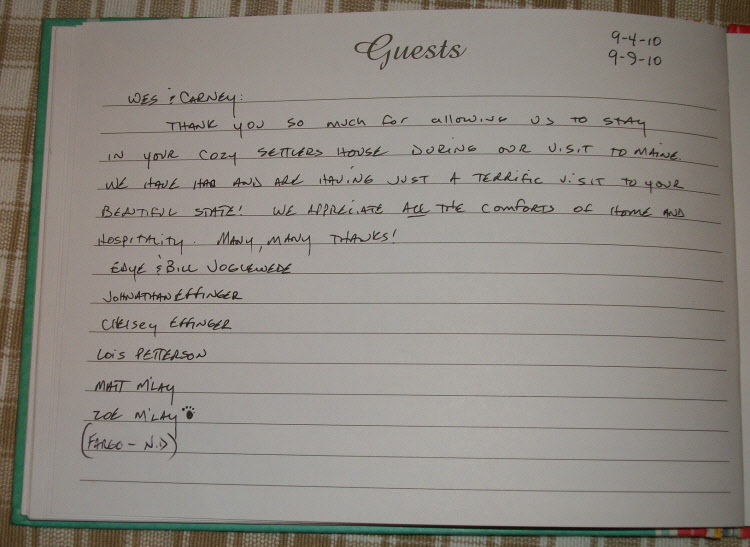 Guests
9-4-10
9-9-10
WES & CARNEY:
THANK YOU SO MUCH FOR ALLOWING US TO STAY
IN YOUR COZY SETTLERS HOUSE DURING OUR VISIT TO MAINE.
WE HAVE HAD AND ARE HAVING JUST A TERRIFIC VISIT TO YOUR
BEAUTIFUL STATE! WE APPRECIATE ALL THE COMFORTS OF HOME AND
HOSPITALITY. MANY, MANY THANKS!
EDYE & BILL VOGLEWEDE
JOHNATHAN EFFINGER
CHELSEY EFFINGER
LOIS PETTERSON
MATT M'LAY
ZOE M'LAY
(FARGO - N.D)